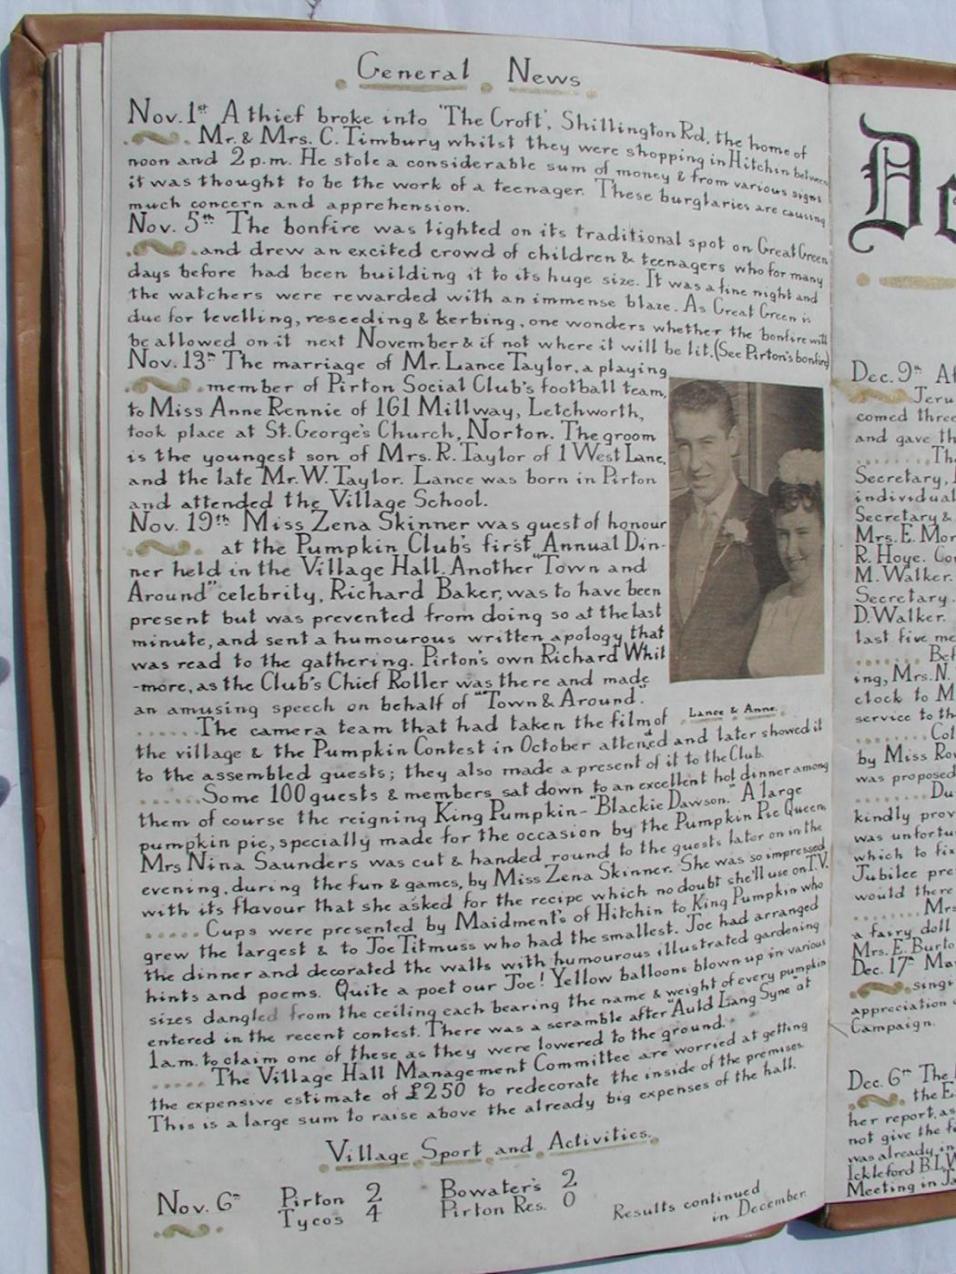 General News
Nov. 1st A thief broke into 'The Croft', Shillington Rd, the home of
Mr. & Mrs. C. Timbury whilst they were shopping in Hitchin between
noon and 2 p.m. He stole a considerable sum of money & from various signs
it was thought to be the work of a teenager. These burglaries are causing
much concern and apprehension.
Nov. 5th The bonfire was lighted on its traditional spot on Great Green
and drew an excited crowd of children & teenagers who for many
days before had been building it to its huge size. It was a fine night and
the watchers were rewarded with an immense blaze. As Great Green is
due for levelling, reseeding & kerbing, one wonders whether the bonfire will
be allowed on it next November & if not where it will be lit. (See Pirton's bonfire)
Nov. 13th The marriage of Mr. Lance Taylor, a playing
member of Pirton Social Club's football team,
to Miss Anne Rennie of 161 Millway, Letchworth,
took place at St. George's Church, Norton. The groom
is the youngest son of Mrs. R. Taylor of 1 West Lane,
and the late Mr. W. Taylor. Lance was born in Pirton
and attended the Village School.
Nov. 19th Miss Zena Skinner was guest of honour
at the Pumpkin Club's first Annual Din-
ner held in the Village Hall. Another "Town and
Around" celebrity, Richard Baker, was to have been
present but was prevented from doing so at the last
minute, and sent a humourous written apology that
was read to the gathering. Pirton's own Richard Whit
-more, as the Club's Chief Roller was there and made
an amusing speech on behalf of "Town & Around".
Lance & Anne.
The camera team that had taken the film of
the village & the Pumpkin Contest in October attended and later showed it
to the assembled guests; they also made a present of it to the Club.
Some 100 guests & members sat down to an excellent hot dinner among
them of course the reigning King Pumpkin - "Blackie Dawson." A large
pumpkin pie, specially made for the occasion by the Pumpkin Pie Queen,
Mrs Nina Saunders was cut & handed round to the guests later on in the
evening, during the fun & games, by Miss Zena Skinner. She was so impressed
with its flavour that she asked for the recipe which no doubt she'll use on T.V.
Cups were presented by Maidment's of Hitchin to King Pumpkin who
grew the largest & to Joe Titmuss who had the smallest. Joe had arranged
the dinner and decorated the walls with humourous illustrated gardening
hints and poems. Quite a poet our Joe! Yellow balloons blown up in various
sizes dangled from the ceiling each bearing the name & weight of every pumpkin
entered in the recent contest. There was a scramble after "Auld Lang Syne" at
1 a.m. to claim one of these as they were lowered to the ground.
The Village Hall Management Committee are worried at getting
the expensive estimate of £250 to redecorate the inside of the premises.
This is a large sum to raise above the already big expenses of the hall.
Village Sport and Activities.
Nov. 6th Pirton 2 Bowater's 2
Tycos 4 Pirton Res. 0
Results continued
in December.
De
Dec. 9th
Jeru
comed three
and gave th
Th
Secretary,
individual
Secretary &
Mrs. E. Mor
R. Hoye. Co
M. Walker.
Secretary.
D. Walker.
last five me
Bef
ing, Mrs. N.
clock to M
service to th
Col
by Miss Ro
was proposed
Du
kindly prov
was unfortu
which to fix
Jubilee pre
would there
Mrs
a fairy doll
Mrs. E. Burto
Dec. 17th Ma
sing
appreciation
Campaign.
Dec. 6th The
the E
her report, as
not give the f
was already in
Ickleford B.L.W
Meeting in Ja